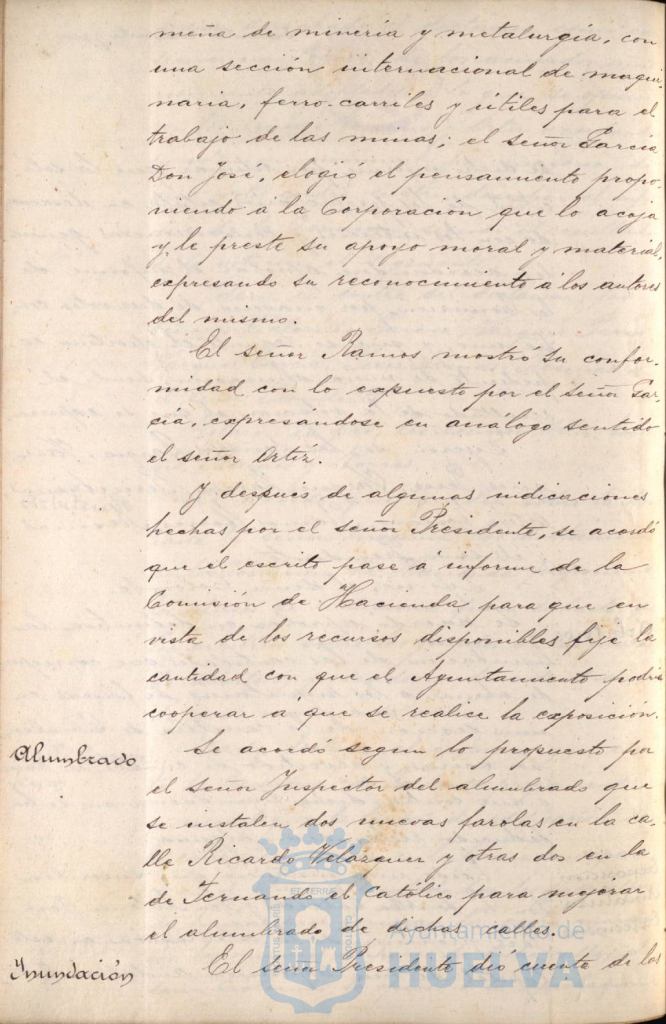 meña de minería y metalurgia, con
una sección internacional de maqui-
naria, ferro-carriles y útiles para el
trabajo de las minas; el señor García
Don José, elogió el pensamiento propo-
niendo á la Corporación que lo acoja
y le preste su apoyo moral y material,
expresando su reconocimiento á los autores
del mismo.
El señor Ramos mostró su confor-
midad con lo expuesto por el señor Gar-
cía, expresándose en análogo sentido
el señor Ortíz.
Y después de algunas indicaciones
hechas por el señor Presidente, se acordó
que el escrito pase á informe de la
Comisión de Hacienda para que en
vista de los recursos disponibles fije la
cantidad con que el Ayuntamiento podría
cooperar á que se realice la exposición.
Alumbrado
Se acordó segun lo propuesto por
el señor Inspector del alumbrado que
se instalen dos nuevas farolas en la ca-
lle Ricardo Velázquez y otras dos en la
de Fernando el Católico para mejorar
el alumbrado de dichas calles.
Inundación
El señor Presidente dió cuenta de los
Ayuntamiento de
HUELVA